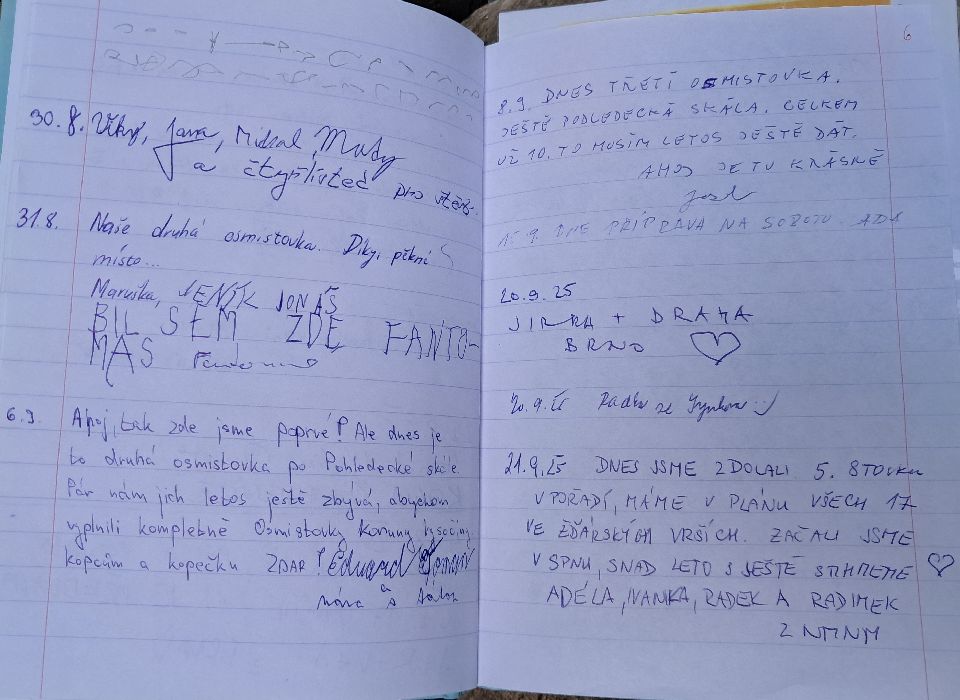 30. 8. Viky, Jana, Michal, Maty
a čtyřlístek pro štěstí
31.8. Naše druhá osmistovka. Díky, pěkné
místo...
Maruška, JENÍK JONÁŠ
BIL SEM ZDE FANTO-
MAS
6.9. Ahoj, tak zde jsme poprvé! Ale dnes je
to druhá osmistovka po Pohledecké skále.
Pár nám jich letos ještě zbývá, abychom
vyplnili kompletně Osmistovky Koruny Vysočiny
kopcům a kopečku ZDAR! Eduard
máma a táta
6
8.9. DNES TŘETÍ OSMISTOVKA.
JEŠTĚ POHLEDECKÁ SKÁLA. CELKEM
UŽ 10. TO MUSÍM LETOS JEŠTĚ DÁT.
AHOJ JE TU KRÁSNĚ
15. 9. DNE PŘÍPRAVA NA SOBOTU.
20.9.25
JIRKA + DRAHA
BRNO
20.9.25 Radka ze
21.9.25 DNES JSME ZDOLALI 5. 8STOVKU
V POŘADÍ, MÁME V PLÁNU VŠECH 17
VE ŽĎÁRSKÝCH VRŠÍCH. ZAČALI JSME
V SRPNU, SNAD LETOS JEŠTĚ STIHNEME
ADÉLA, IVANKA, RADEK A RADIMEK
Z NMNM